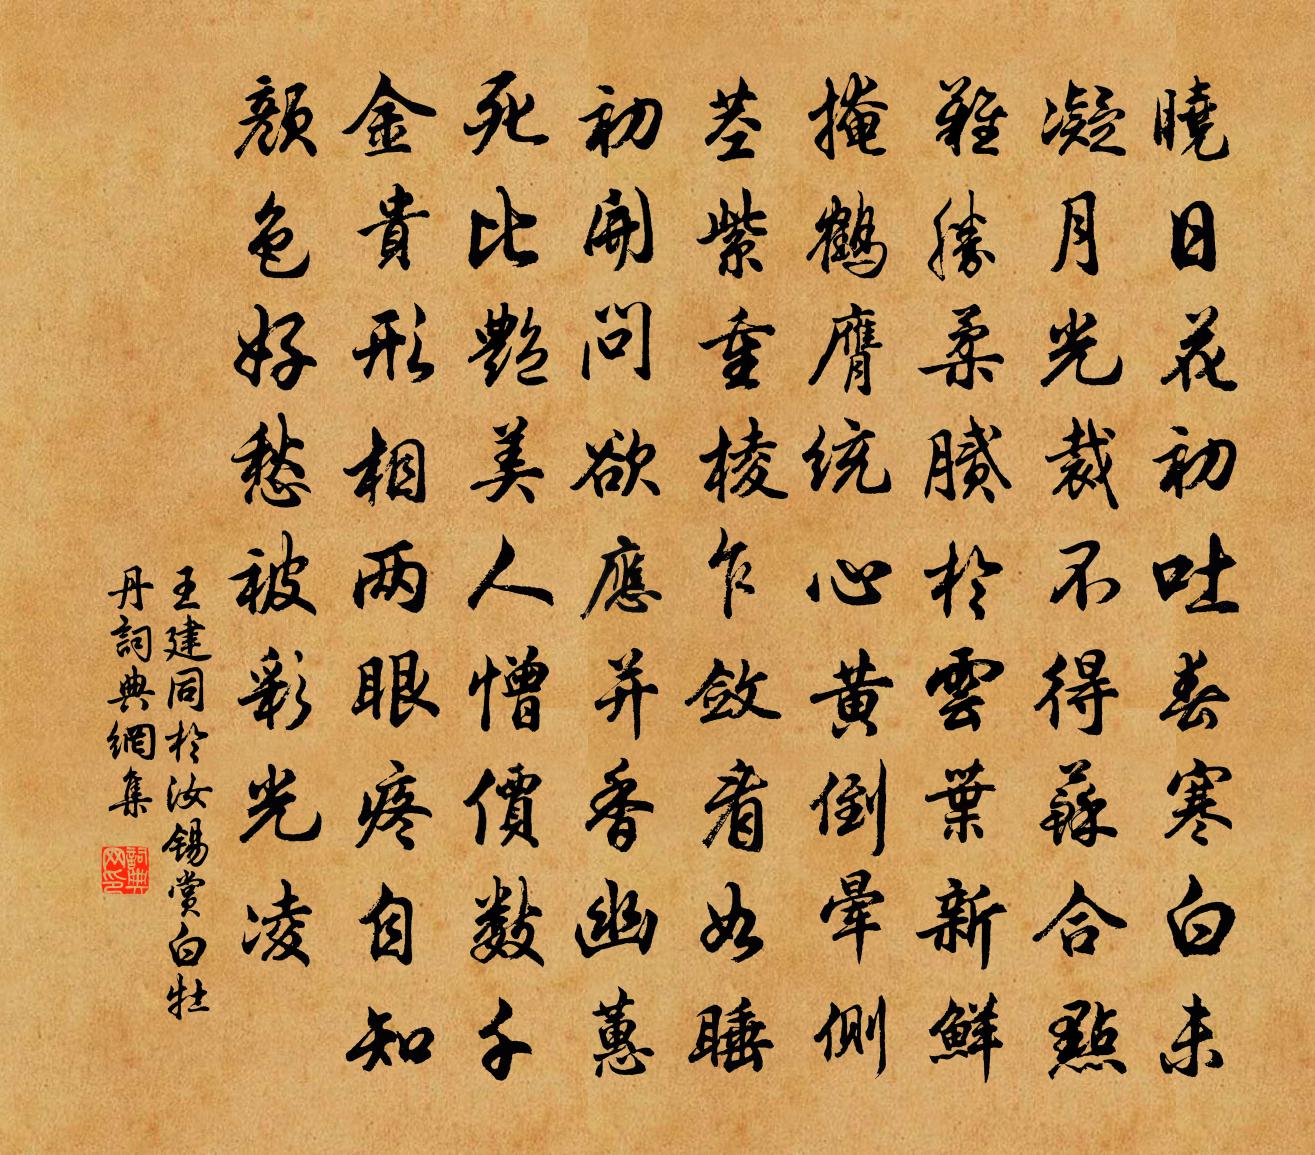 曉日花初吐春寒白未
凝月光裁不得蘇合點
難勝柔膩於雲葉新鮮
掩鶴膺統心黃倒暈側
茎紫重棱乍斂看如睡
初開問欲應并香幽蕙
死比艷美人憎價數千
金貴形相两眼疼自知
顏色好愁被彩光凌
王建同於汝錫賞白牡
丹詞典網集
詞典
网印